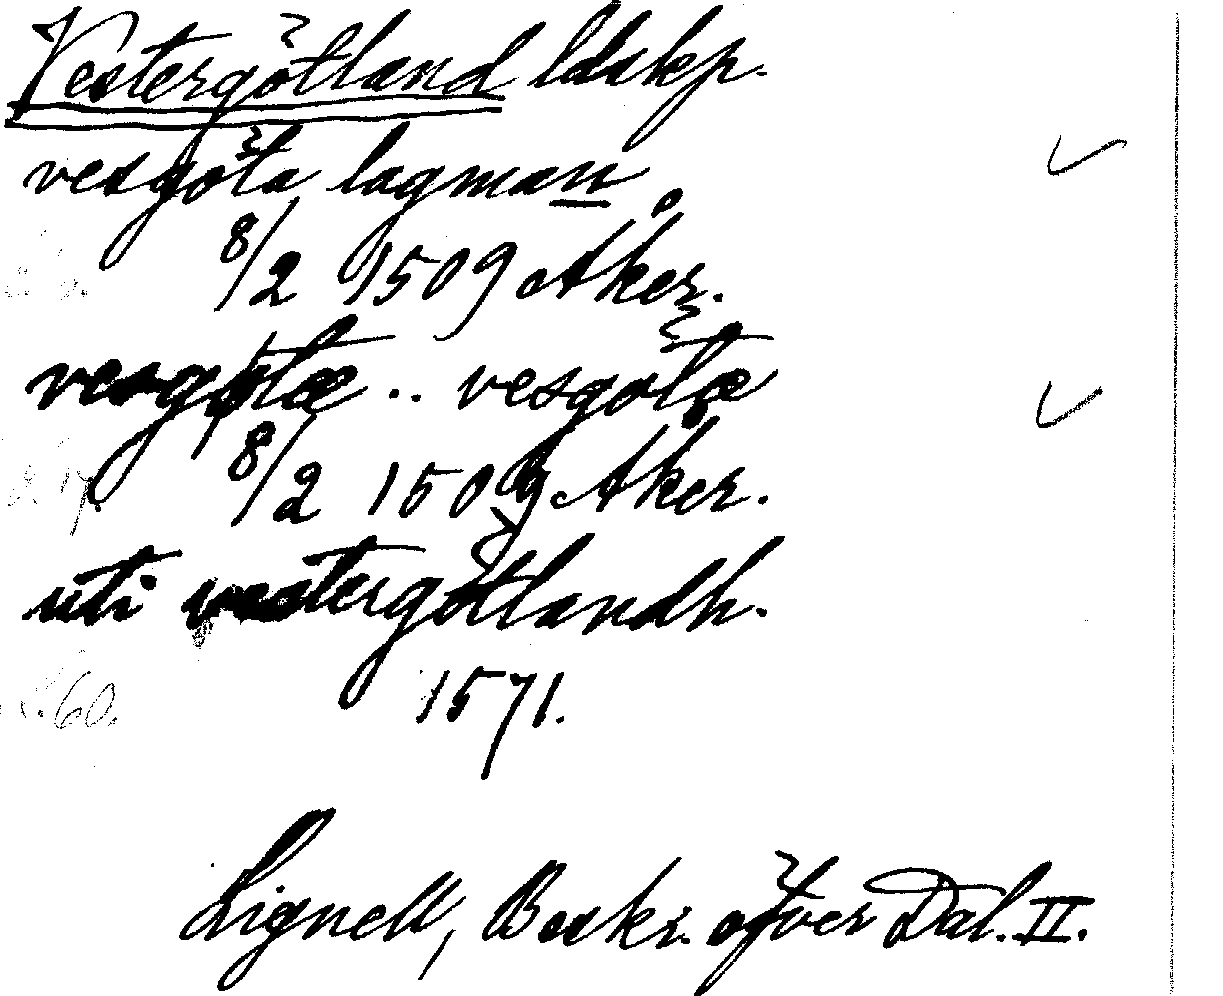 Vestergötland ldskp.
vesgöta lagman
8/2 1509 Åker.
vesgøtæ .. vesgotæ
8/2 1509 Åker.
uti vestergötlandh.
1571.
s. 60.
Lignell, Beskr. öfver Dal. II.